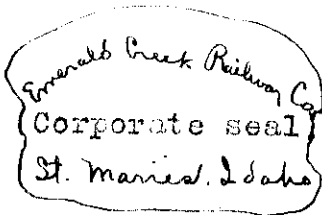 Emerald Creek Railway Co
Corporate seal
St. Maries. Idaho